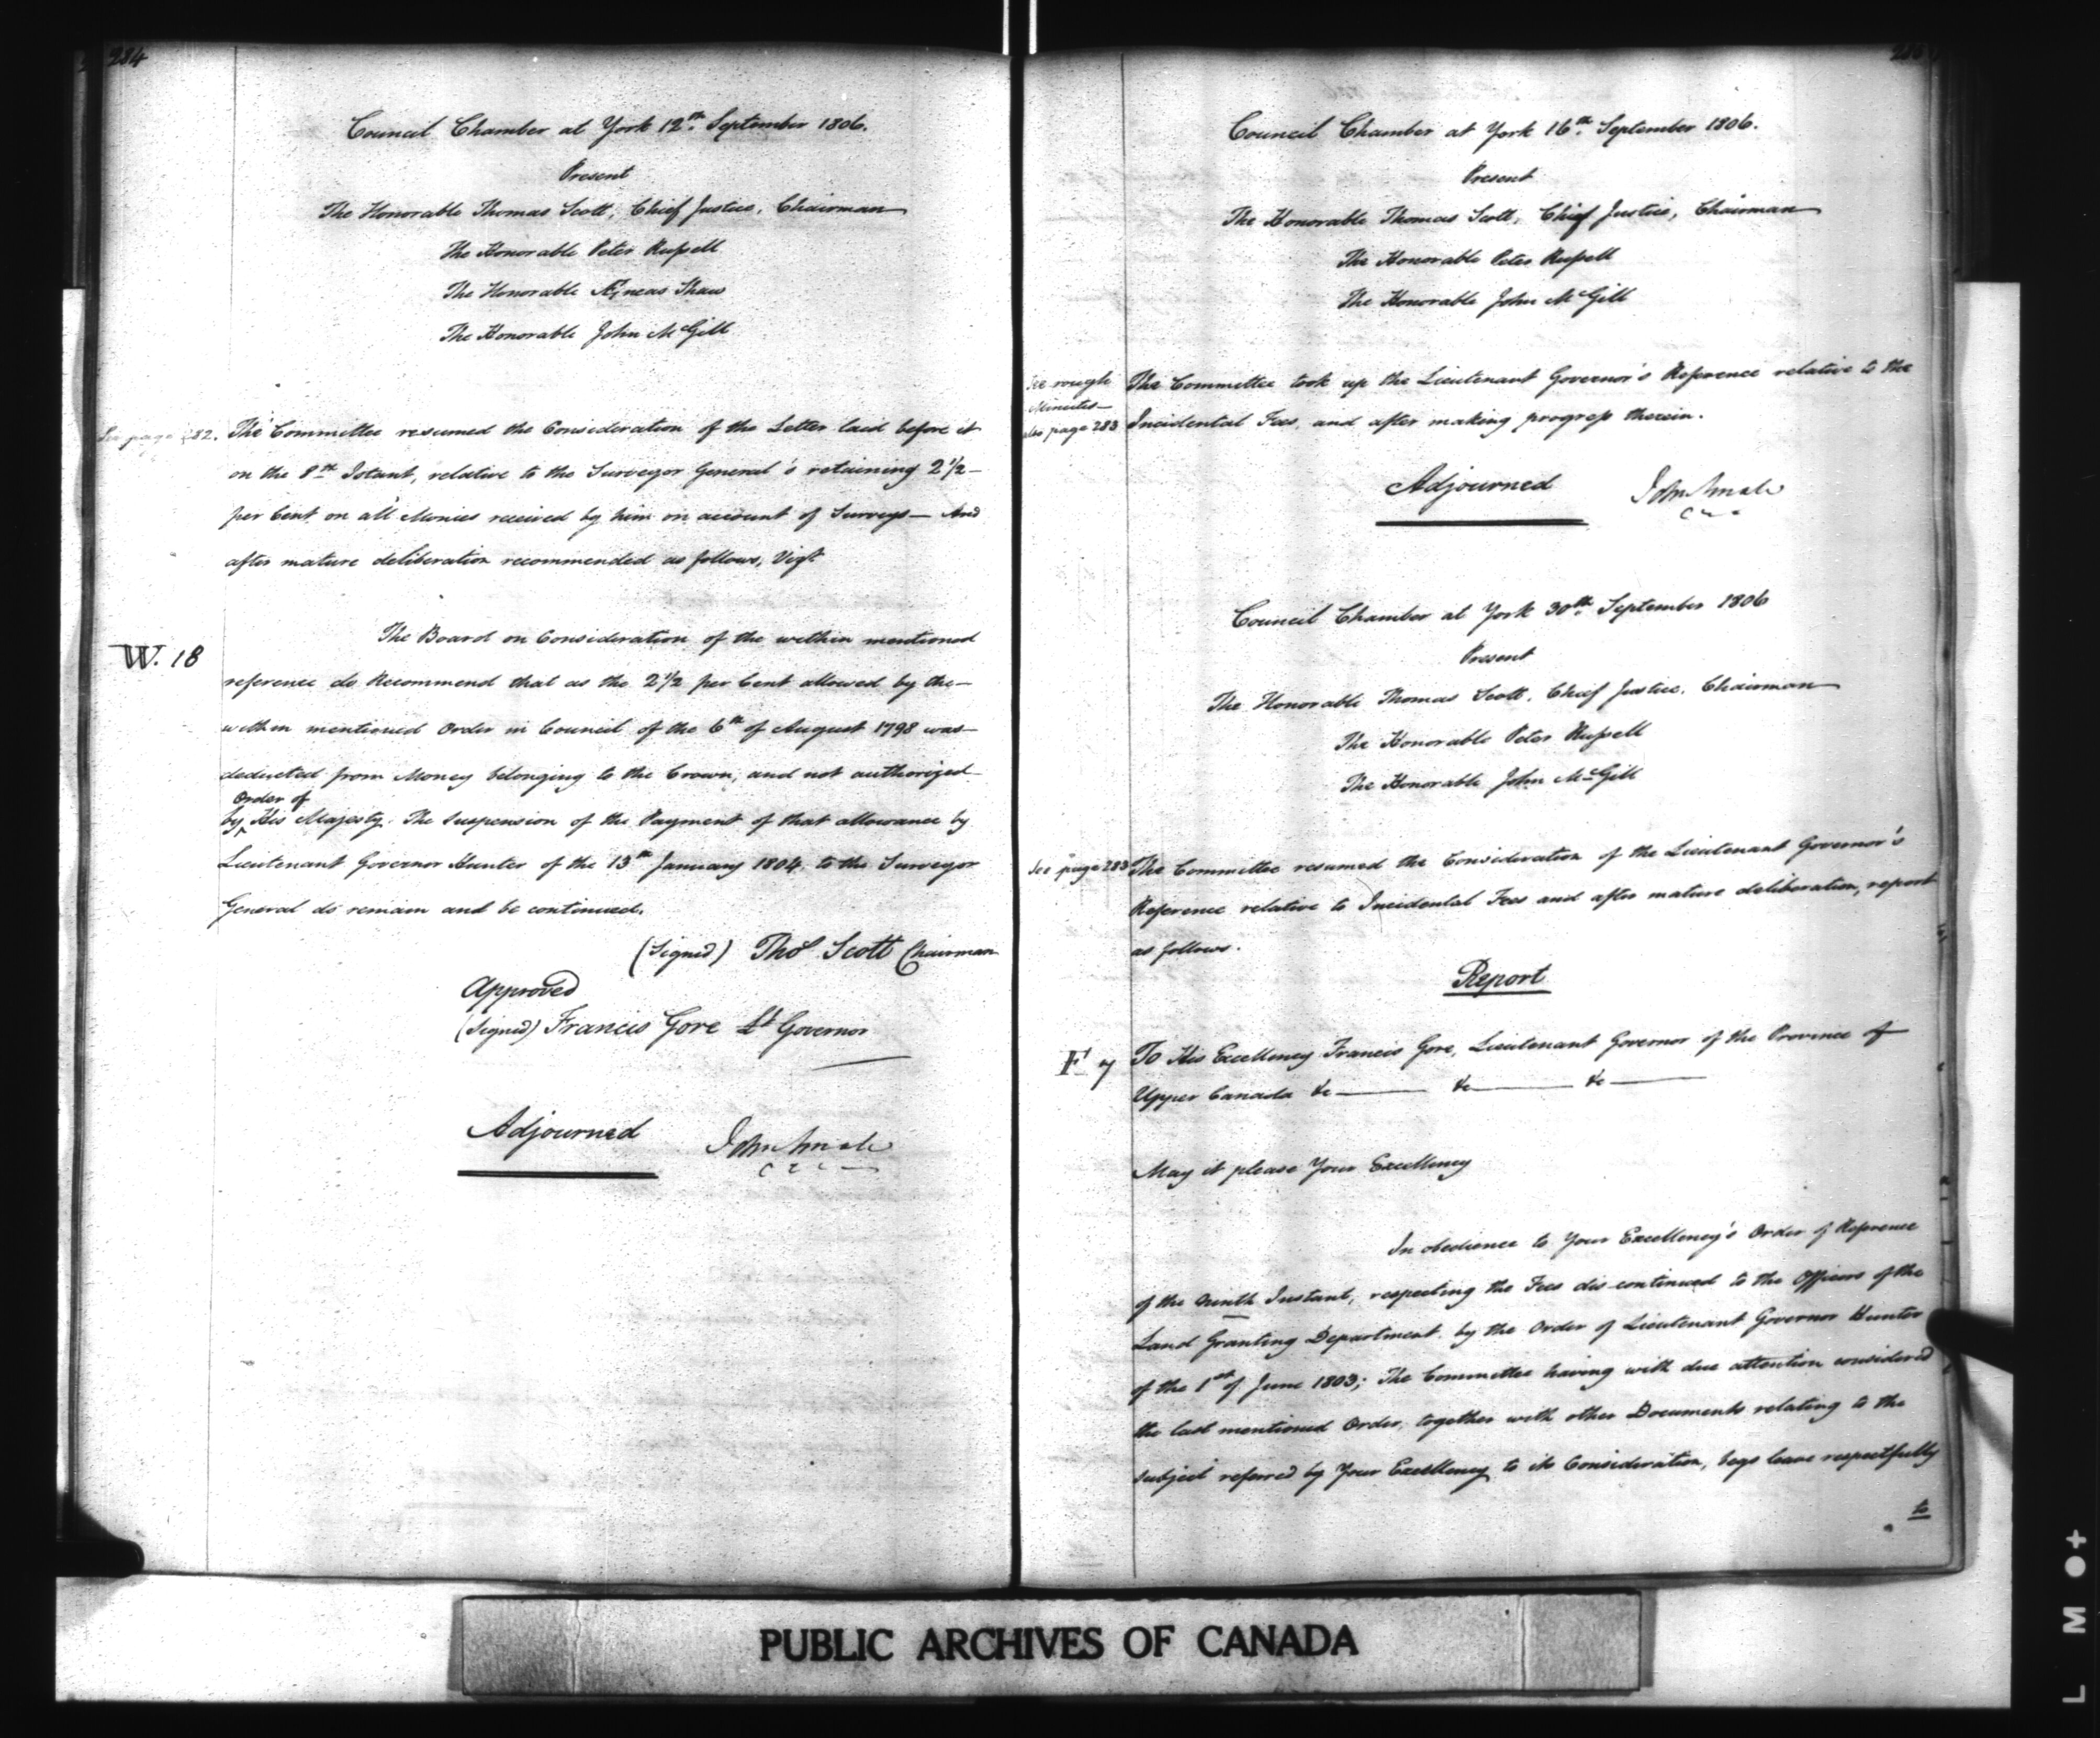 284
Council Chamber at York 12th September 1806.
Present
The Honorable Thomas Scott, Chief Justice, Chairman
The Honorable Peter Russell
The Honorable Æneas Shaw
The Honorable John McGill
See page 282.
The Committee resumed the Consideration of the Letter laid before it
on the 8th Istant, relative to the Surveyor General's retaining 2½
per Cent on all Monies received by him on account of Surveys — And
after mature deliberation recommended as follows, Vizt
W. 18
The Board on Consideration of the within mentioned
reference do Recommend that as the 2½ per Cent allowed by the
within mentioned Order in Council of the 6th of August 1798 was
deducted from Money belonging to the Crown, and not authorized
Order of
by His Majesty. The Suspension of the Payment of that allowance by
Lieutenant Governor Hunter of the 13th January 1804, to the Surveyor
General do remain and be continued.
(Signed) Thos Scott Chairman
Approved
(Signed) Francis Gore Lt Governor
Adjourned John Small
Council Chamber at York 16th September 1806.
Present
The Honorable Thomas Scott, Chief Justice, Chairman
The Honorable Peter Russell
The Honorable John McGill
See rough
Minutes—
also page 283
The Committee took up the Lieutenant Governor's Reference relative to the
Incidental Fees, and after making progress therein.
Adjourned John Small
Council Chamber at York 30th September 1806
Present
The Honorable Thomas Scott, Chief Justice, Chairman
The Honorable Peter Russell
The Honorable John McGill
See page 283
The Committee resumed the Consideration of the Lieutenant Governor's
Reference relative to Incidental Fees and after mature deliberation, report
as follows.
Report
F 7
To His Excellency Francis Gore, Lieutenant Governor of the Province of
Upper Canada &c — &c — &c —
May it please Your Excellency
In obedience to Your Excellency's Order of Reference
of the ninth Instant, respecting the Fees dis-continued to the Officers of the
Land Granting Department by the Order of Lieutenant Governor Hunter
of the 1st of June 1803; The Committee having with due attention considered
the last mentioned Order, together with other Documents relating to the
subject referred by Your Excellency to its Consideration, begs leave respectfully
to
PUBLIC ARCHIVES OF CANADA
L M